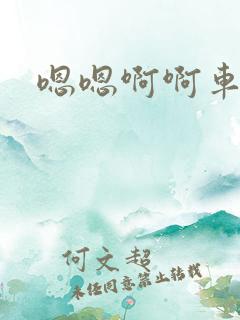 嗯嗯啊啊车
何文超
未经同意禁止转载